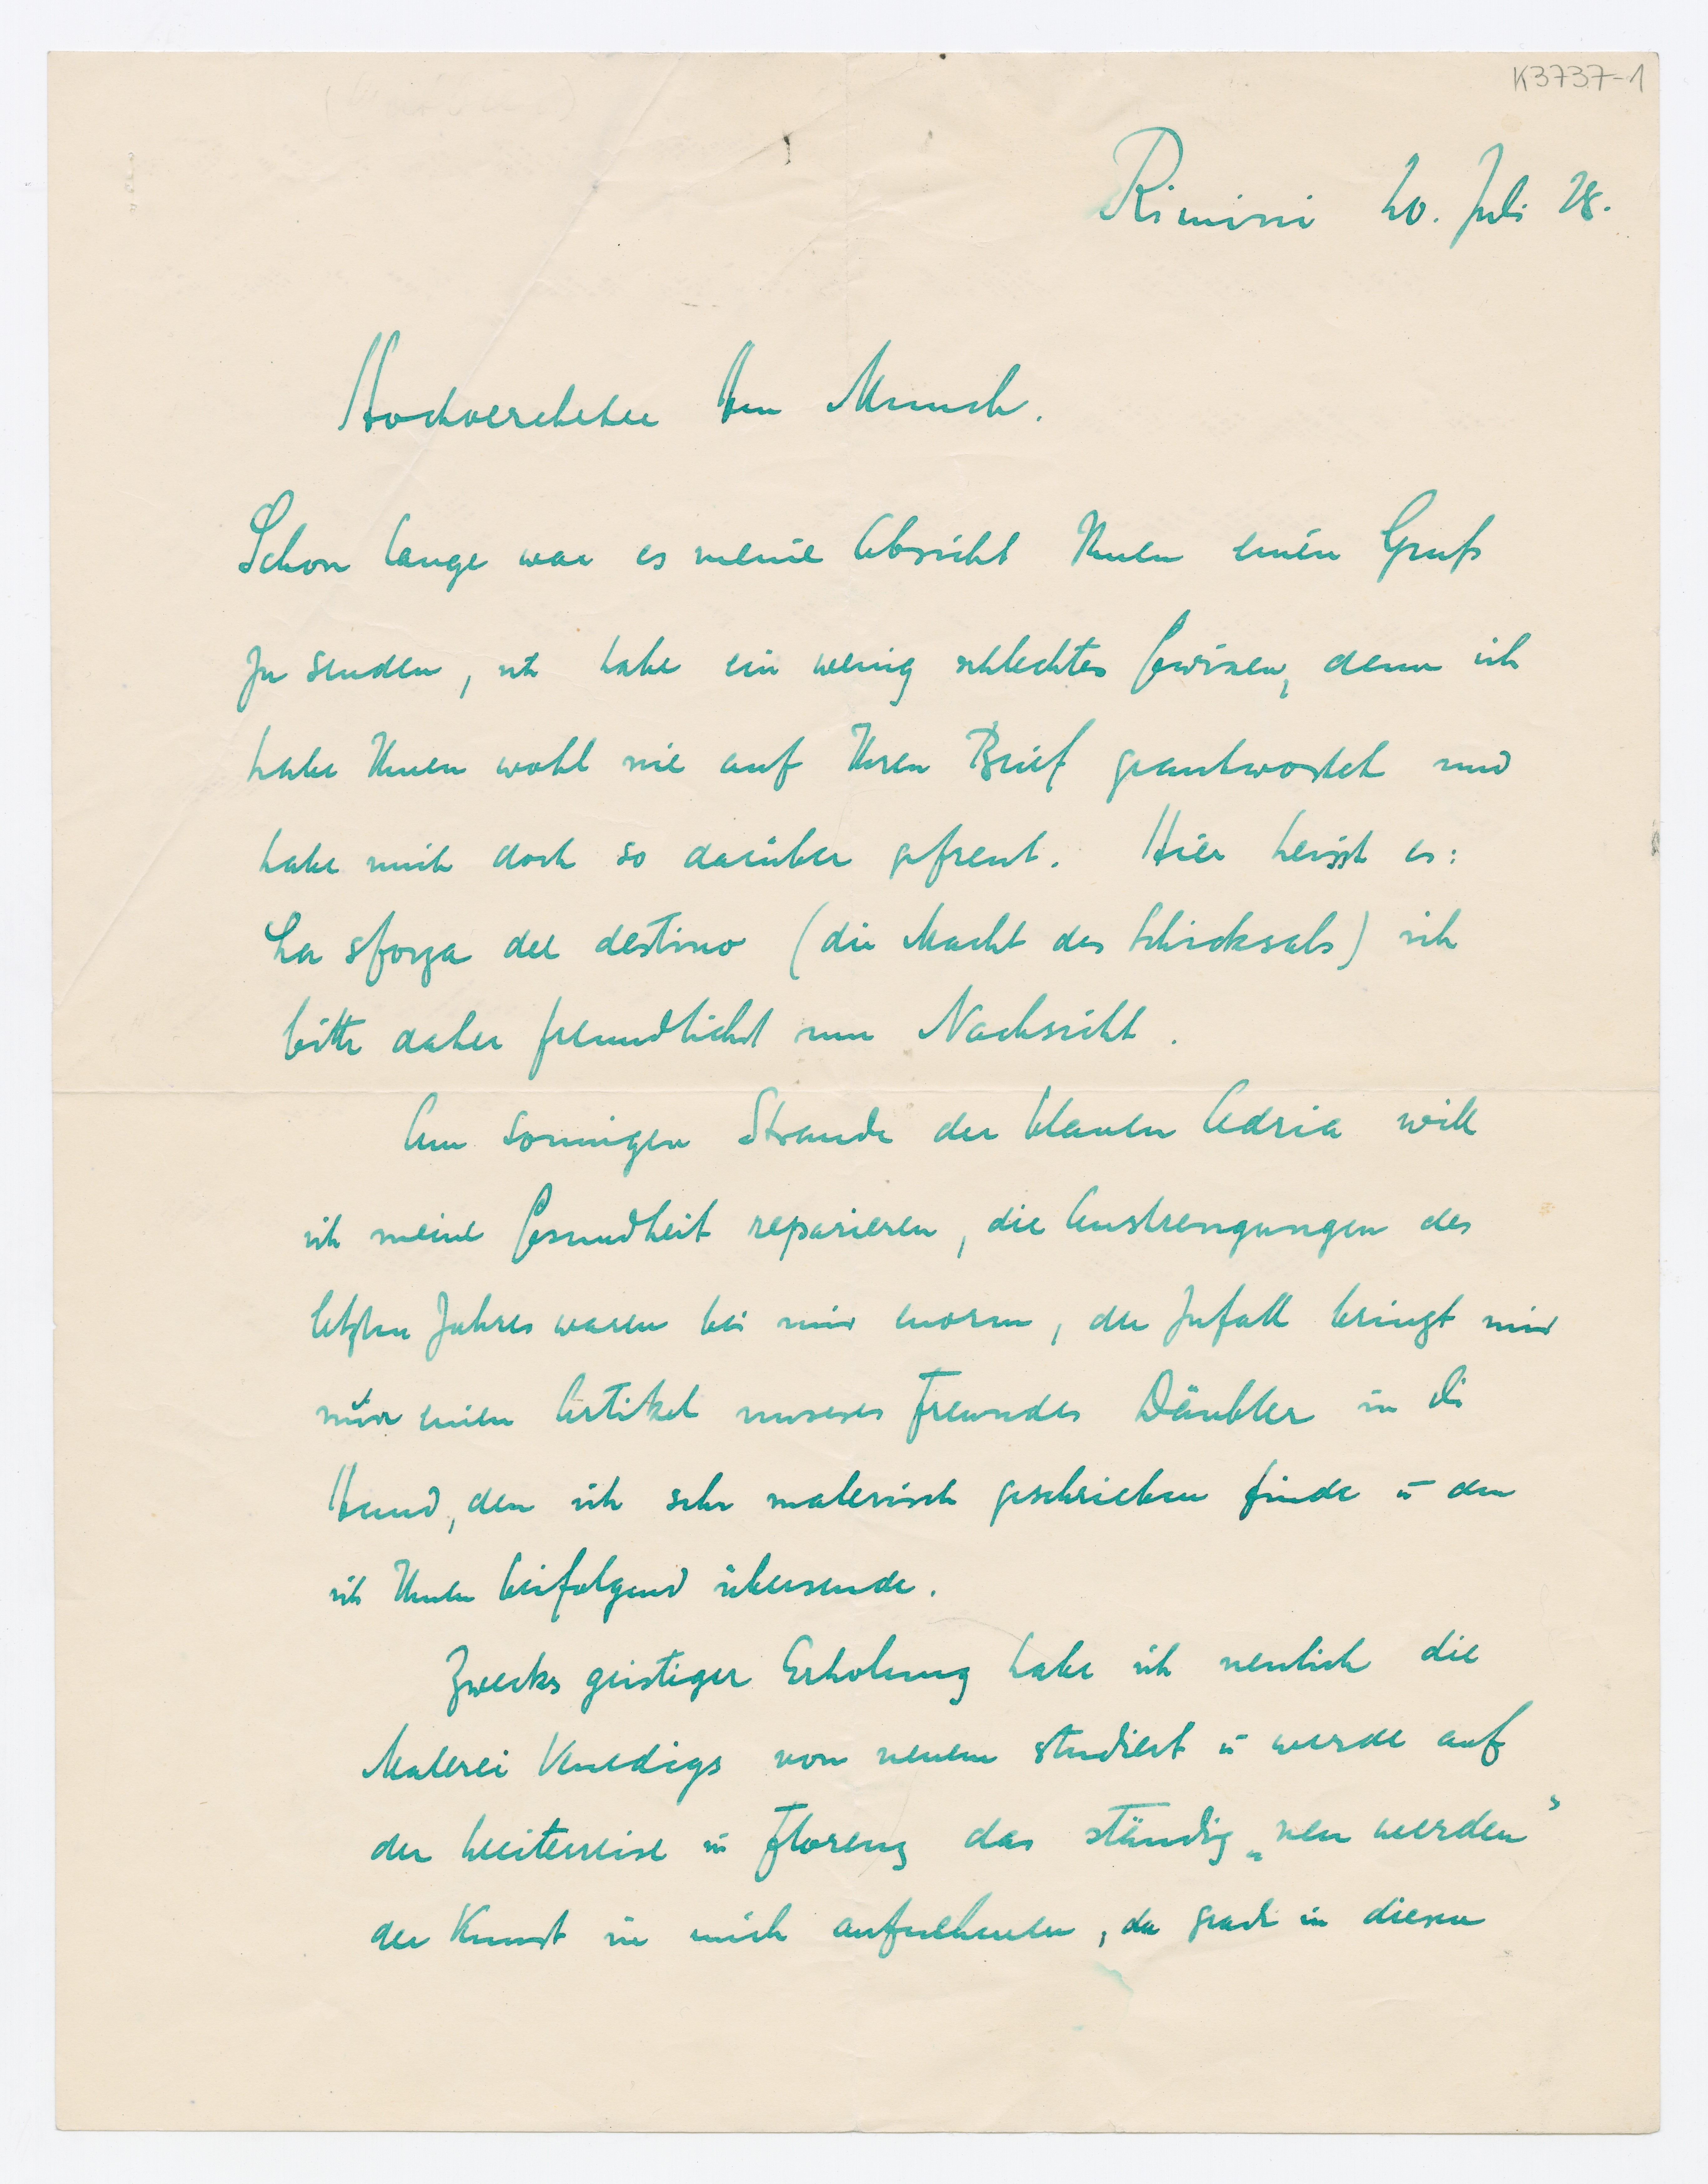 K3737-1
Rimini 20. Juli 28.
Hochverehrter Herr Munch.
Schon lange war es meine Absicht Ihnen einen Gruß
zu senden, ich habe ein wenig schlechtes Gewissen, denn ich
habe Ihnen wohl nie auf Ihren Brief geantwortet und
habe mich doch so darüber gefreut. Hier heisst es:
La sforza del destino (die Macht des Schicksals) ich
bitte daher freundlichst um Nachsicht.
Am sonnigen Strande der blauen Adria will
ich meine Gesundheit reparieren, die Anstrengungen des
letzten Jahres waren bei mir enorm, der Zufall bringt mir
nun einen Artikel unseres Freundes Däubler in die
Hand, den ich sehr malerisch geschrieben finde u den
ich Ihnen beifolgend übersende.
Zwecks geistiger Erholung habe ich neulich die
Malerei Venedigs von neuem studiert u werde auf
der Weiterreise in Florenz das ständig „neu werden”
der Kunst in mich aufnehmen, da grade in diesen